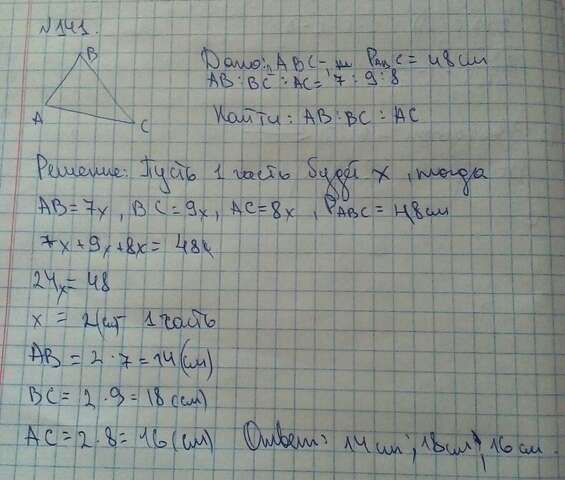 №141.
B
A
C
Дано: ABC - P ABC = 48 см
AB : BC : AC = 7 : 9 : 8
Найти: AB : BC : AC
Решение: Пусть 1 часть будет x, тогда
AB = 7x, BC = 9x, AC = 8x, PABC = 48 см
7x + 9x + 8x = 48
24x = 48
x = 2 см 1 часть
AB = 2 · 7 = 14 (см)
BC = 2 · 9 = 18 (см)
AC = 2 · 8 = 16 (см) Ответ: 14 см, 18 см, 16 см.